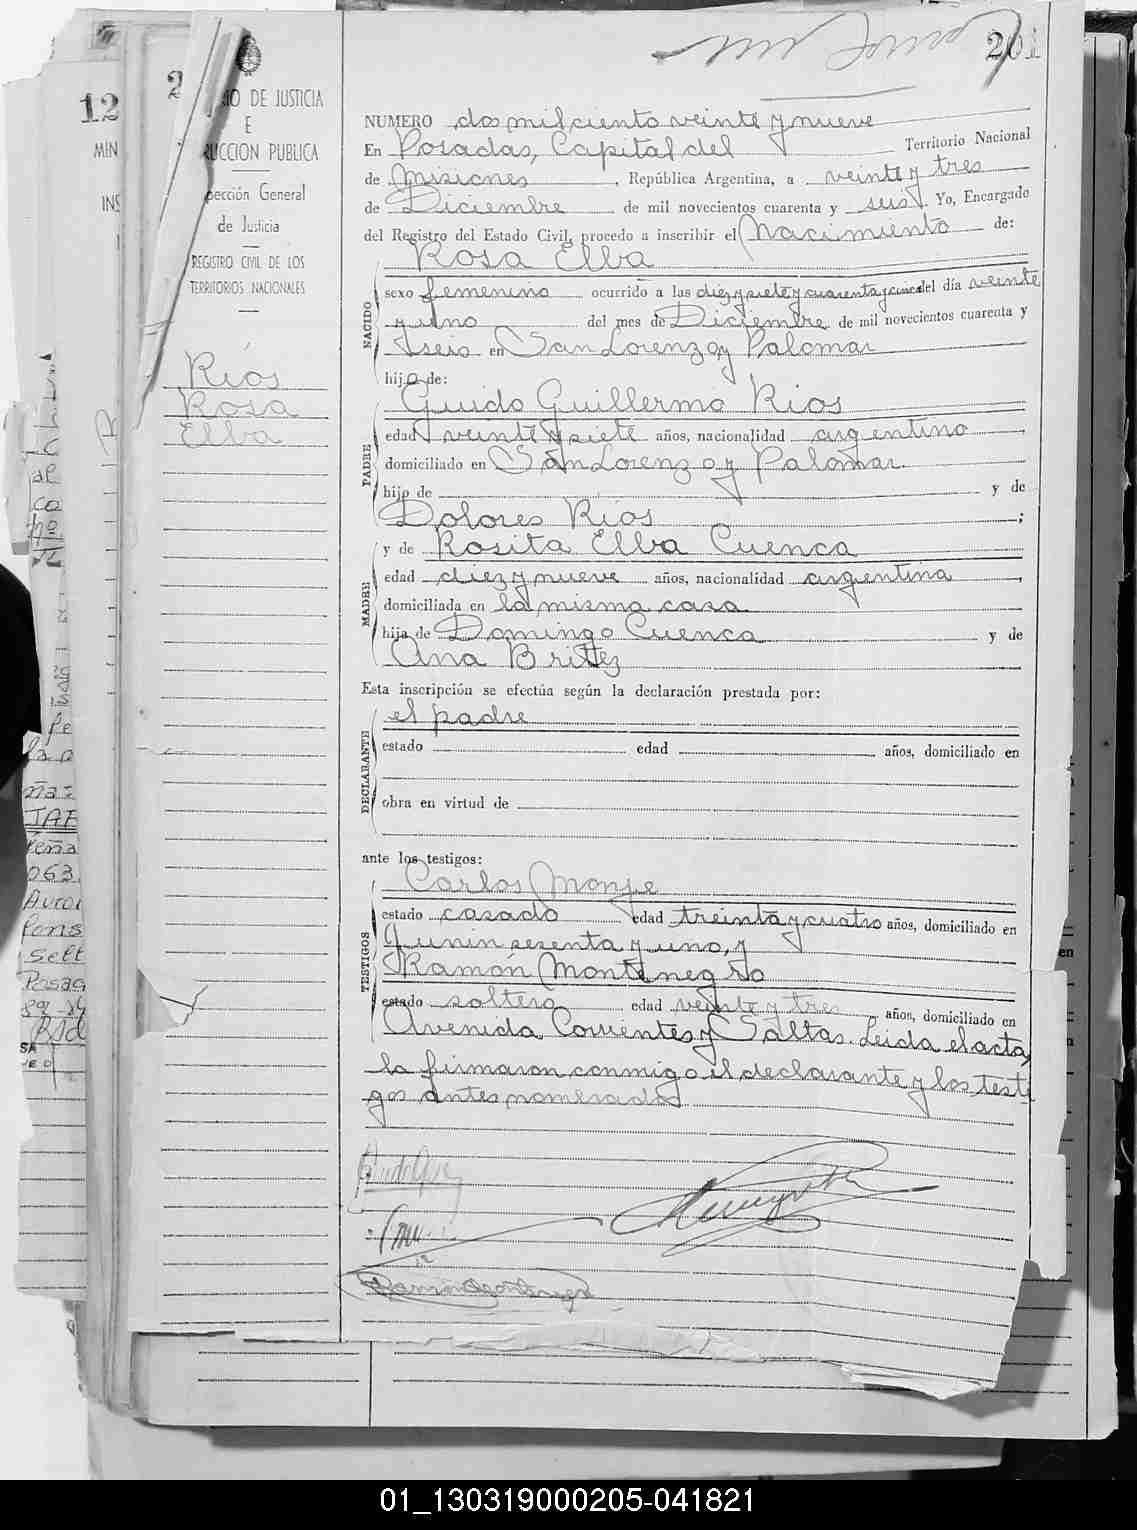 201
12
MIN
INS
2
DE JUSTICIA
E
RUCCION PUBLICA
pección General
de Justicia
REGISTRO CIVIL DE LOS
TERRITORIOS NACIONALES
Ríos
Rosa
Elba
NUMERO dos mil ciento veinte y nueve
En Posadas, Capital del Territorio Nacional
de Misiones, República Argentina, a veinte y tres
de Diciembre de mil novecientos cuarenta y seis. Yo, Encargado
del Registro del Estado Civil, procedo a inscribir el Nacimiento de:
Rosa Elba
NACIDO
sexo femenino ocurrido a las diez y siete y cuarenta y cinco del día veinte
y uno del mes de Diciembre de mil novecientos cuarenta y
seis en San Lorenzo y Palomar
hija de:
Guido Guillermo Rios
PADRE
edad veinte y siete años, nacionalidad argentino
domiciliado en San Lorenzo y Palomar
hijo de y de
Dolores Ríos;
y de Rosita Elba Cuenca
MADRE
edad diez y nueve años, nacionalidad argentina,
domiciliada en la misma casa
hija de Domingo Cuenca y de
Ana Brittez
Esta inscripción se efectúa según la declaración prestada por:
el padre
DECLARANTE
estado edad años, domiciliado en
obra en virtud de
ante los testigos:
Carlos Monje
TESTIGOS
estado casado edad treinta y cuatro años, domiciliado en
Junin sesenta y uno, y
Ramón Montenegro
estado soltero edad veinte y tres años, domiciliado en
Avenida Corrientes y Saltas. Leida el acta,
la firmaron conmigo el declarante y los testi
gos antes nombrados
en
01_130319000205-041821